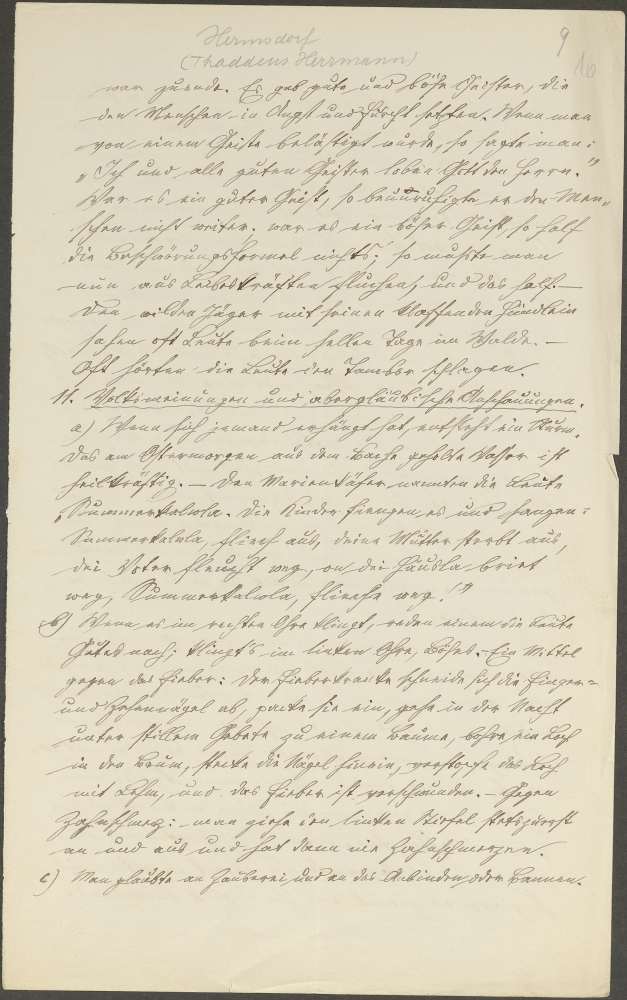 Hermsdorf
(Thaddeus Herrmann)
9
10
war zuende. Es gab gute und böse Geister, die
den Menschen in Angst und Furcht setzten. Wenn man
von einem Geiste belästigt wurde, so sagte man:
„Ich und alle guten Geister loben Gott den Herrn.“
War es ein guter Geist, so beunruhigte er den Men„
schen nicht weiter, war es ein böser Geist, so half
die Beschwörungsformel nichts; so mußte man
nun aus Leibeskräften fluchen, und das half. —
Den wilden Jäger mit seinen klaffenden Hündlein
sahen oft Leute beim hellen Tage im Walde. —
Oft hörten die Leute den Tambor schlagen.
11. Volksmeinungen und abergläubische Anschauungen.
a) Wenn sich jemand erhängt hat, entsteht ein Sturm.
Das am Ostermorgen aus dem Bache geholte Wasser ist
heilkräftig. — Den Marienkäfer nannten die Leute
„Summerkalola. Die Kinder fiengen es und sangen:
Summerkalula, flieh aus, deine Mutter sterbt aus,
dei Voter fleucht weg, on dei Häusla briet
weg, Summerkaliola, fliehe weg!“
b) Wenn es im rechten Ohre klingt, reden einem die Leute
Gutes nach; klingt's im linken Ohre, Böses. – Ein Mittel
gegen das Fieber: Der Fieberkranke schneide sich die Finger=
und Zehennägel ab, packe sie ein, gehe in der Nacht
unter stillem Gebete zu einem Baume, bohre ein Loch
in den Baum, stecke die Nägel hinein, verstopfe das Loch
mit Lehm, und das Fieber ist verschwunden. – Gegen
Zahnschmerz: man ziehe den linken Stiefel stets zuerst
an und aus und hat dann nie Zahnschmerzen.
c) Man glaubte an Zauberei und an das Anbinden oder Bannen.